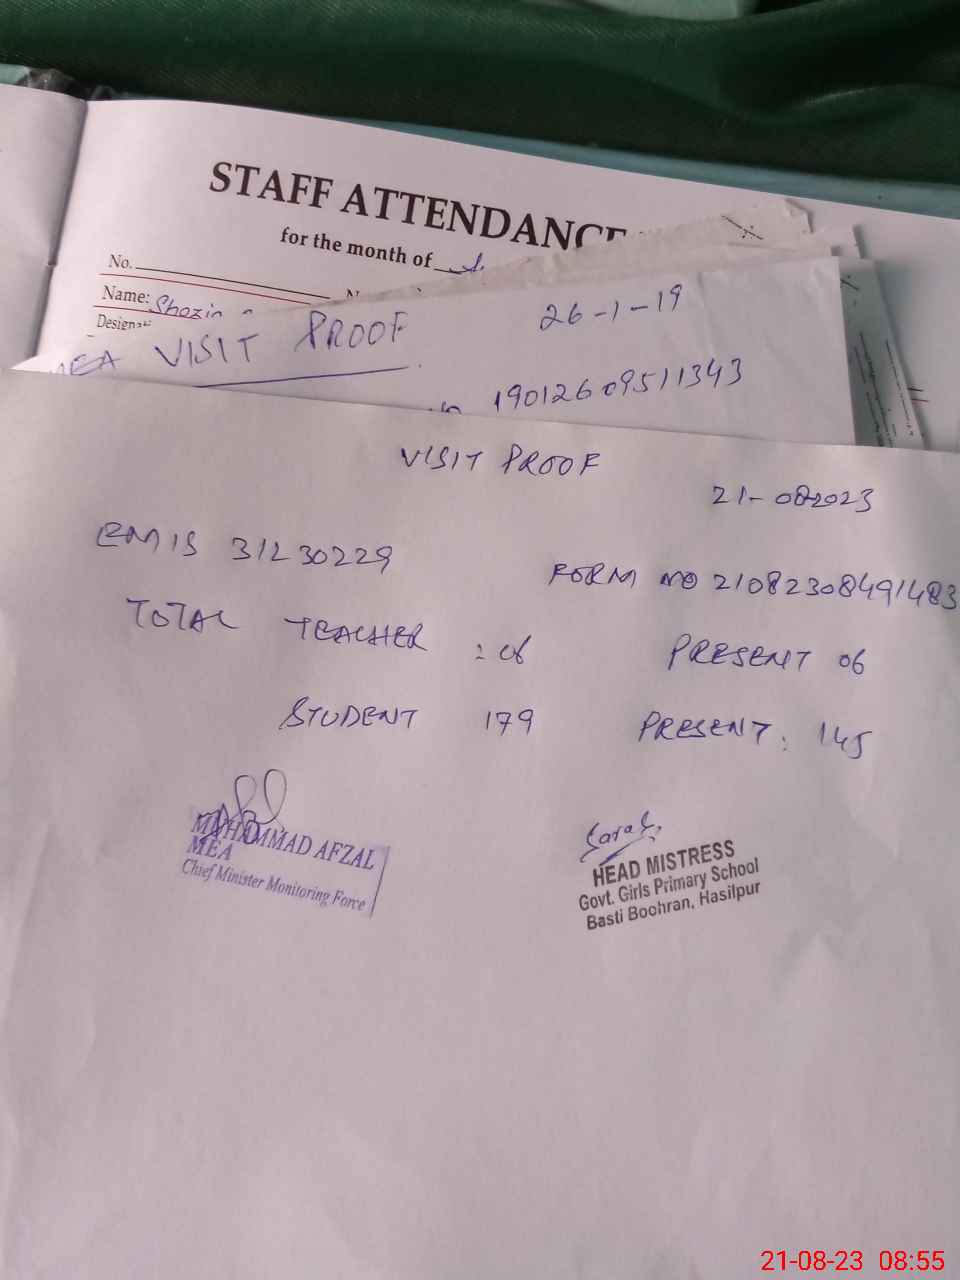 STAFF ATTENDANCE
for the month of
No.
Name: Shazin
VISIT PROOF
26-1-19
19012609511343
VISIT PROOF
21-08-2023
EMIS 31230229
FORM NO 21082308491483
TOTAL TEACHER : 06 PRESENT 06
STUDENT 179 PRESENT: 145
MUHAMMAD AFZAL
MEA
Chief Minister Monitoring Force
HEAD MISTRESS
Govt. Girls Primary School
Basti Boohran, Hasilpur
21-08-23 08:55